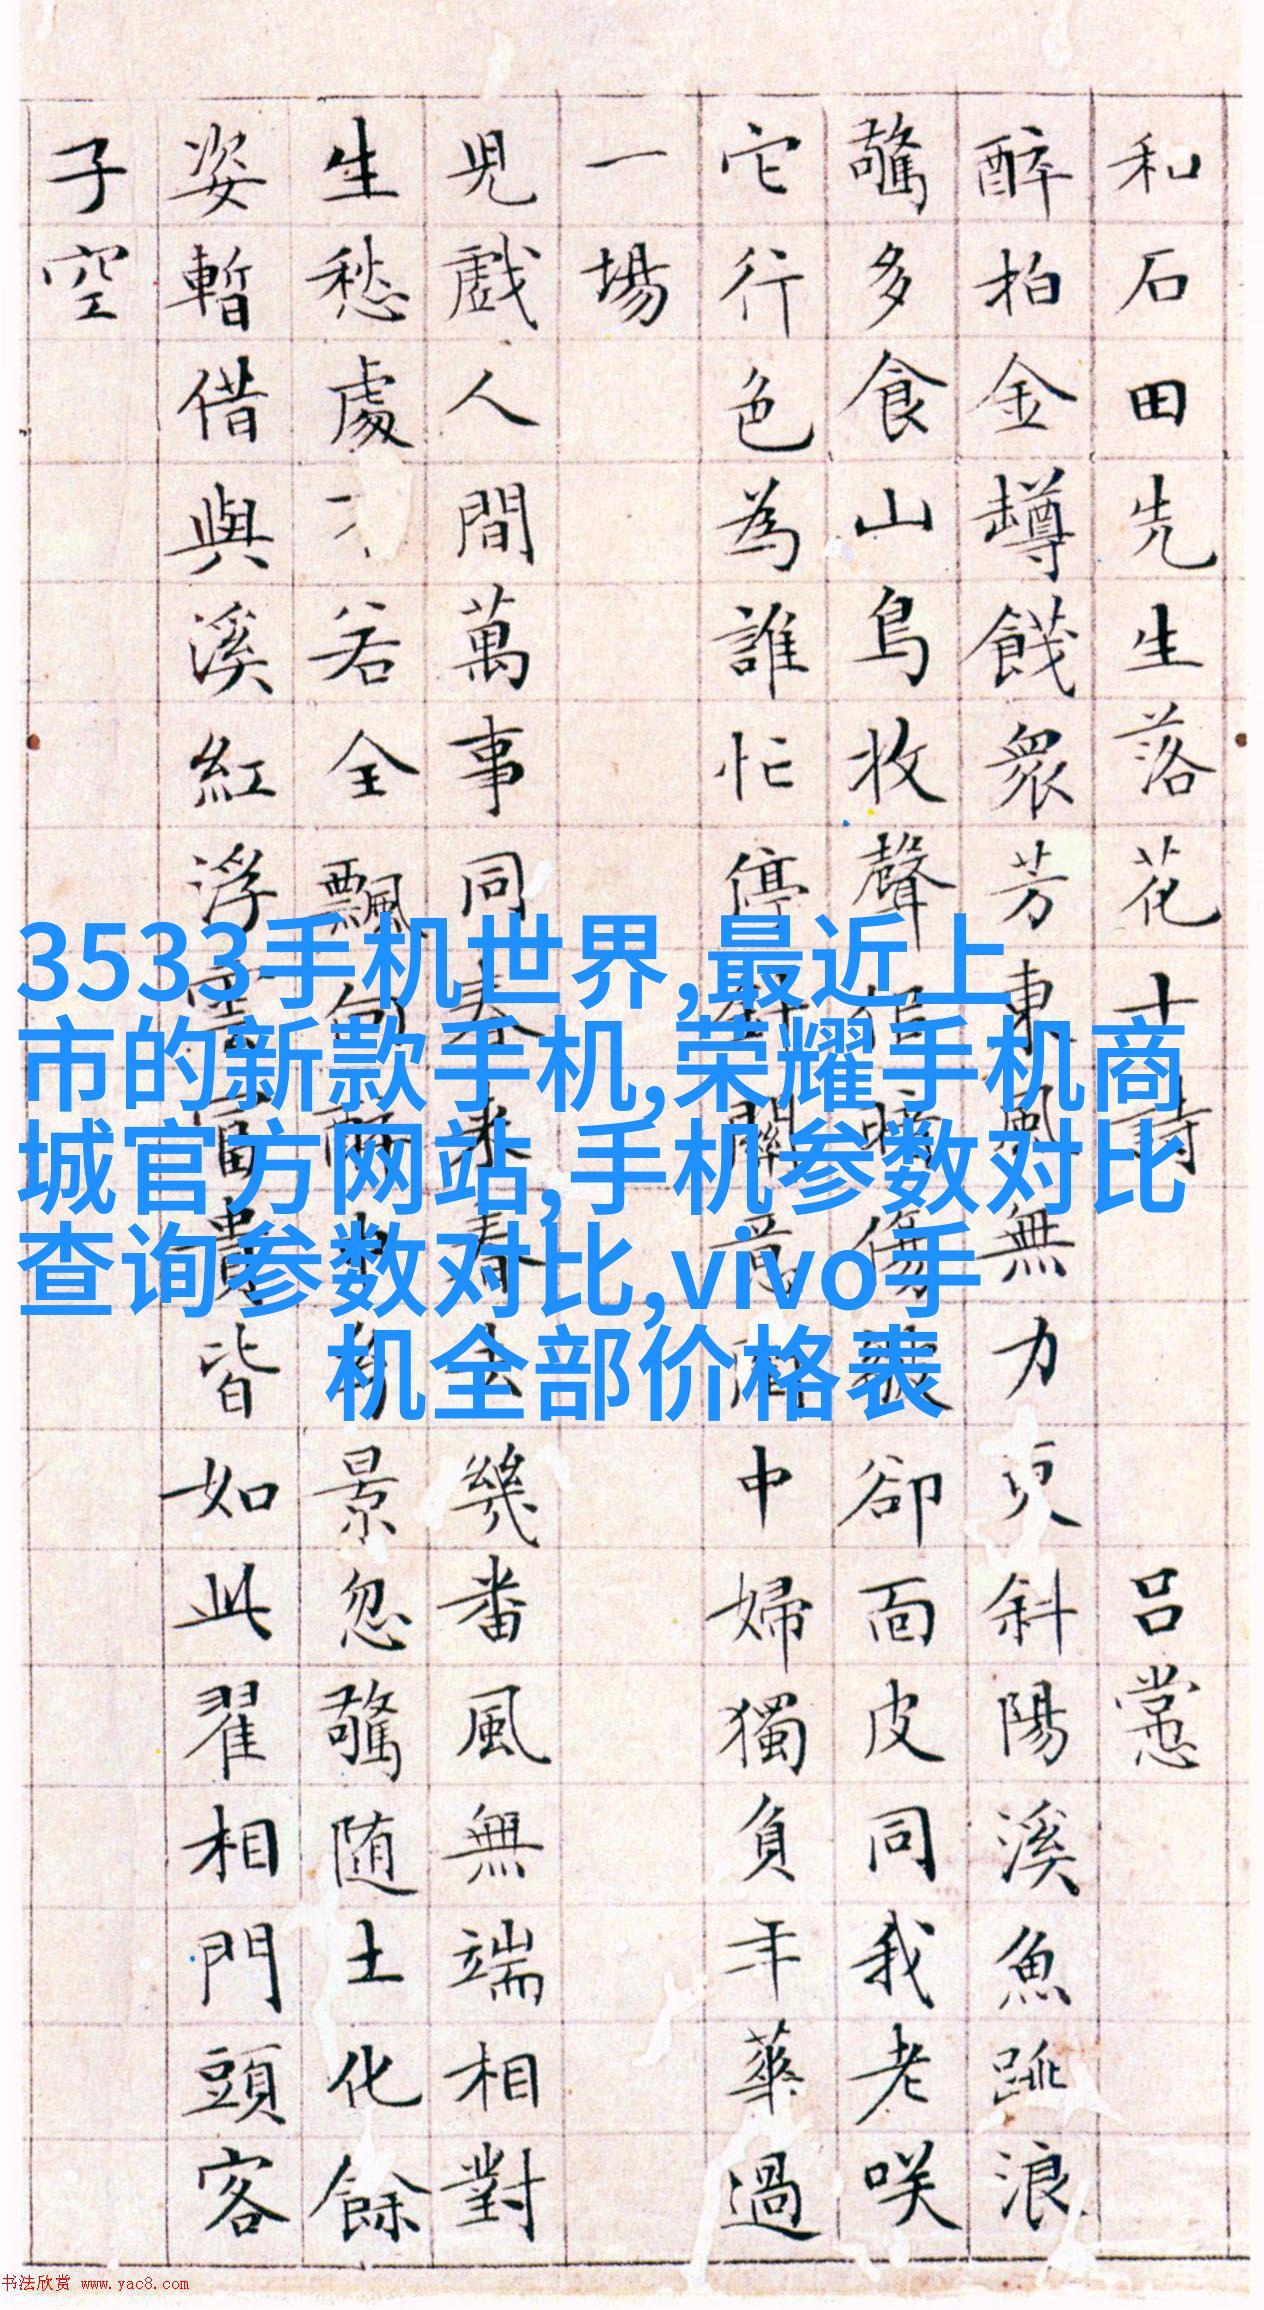 和石田先生落花十詩 吕㦂
醉拍金罇餞衆芳東風無力更斜陽溪魚跳浪
驚多食山鳥收聲傷卻面皮同我老咲
它行色為誰忙停針意中婦獨負年華過
一場
兒戲人間萬事同春來春去幾番風無端相對
生愁處不若全飄景忽驚随土化餘
姿暫借與溪紅浮雲富貴皆如此翟相門頭客
子空
3533手机世界,最近上
市的新款手机,荣耀手机商
城官方网站,手机参数对比
查询参数对比,vivo手
机全部价格表
书法欣赏 www.yac8.com